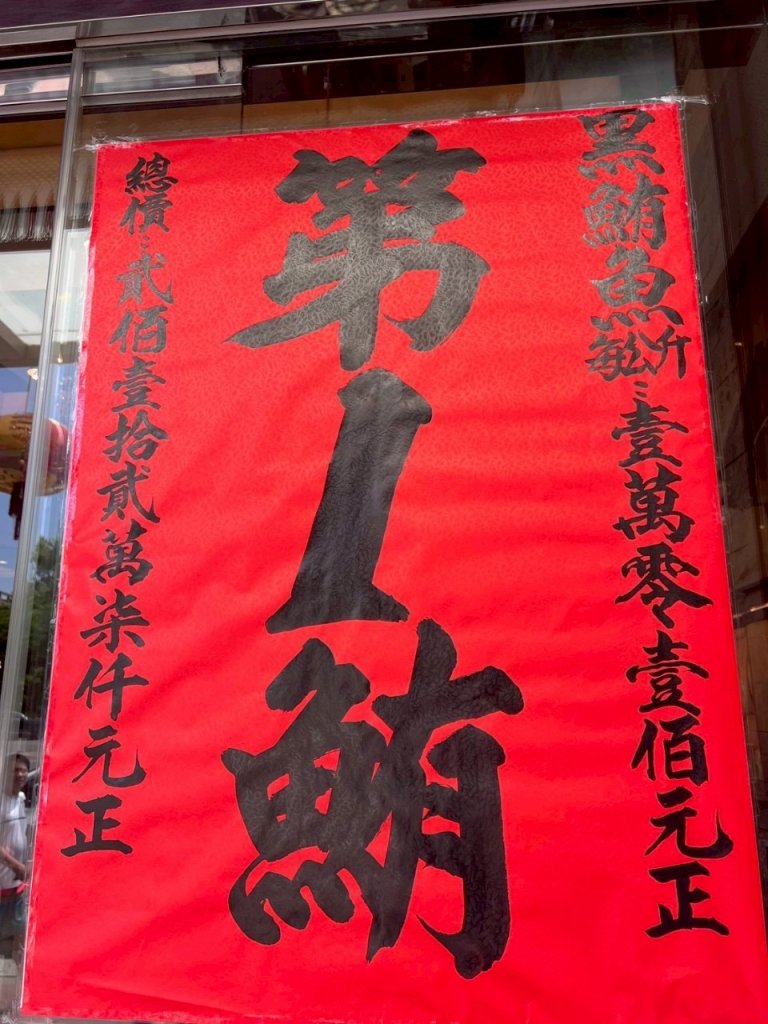 黑鮪魚每公斤：壹萬零壹佰元正
第1鮪
總價：貳佰壹拾貳萬柒仟元正